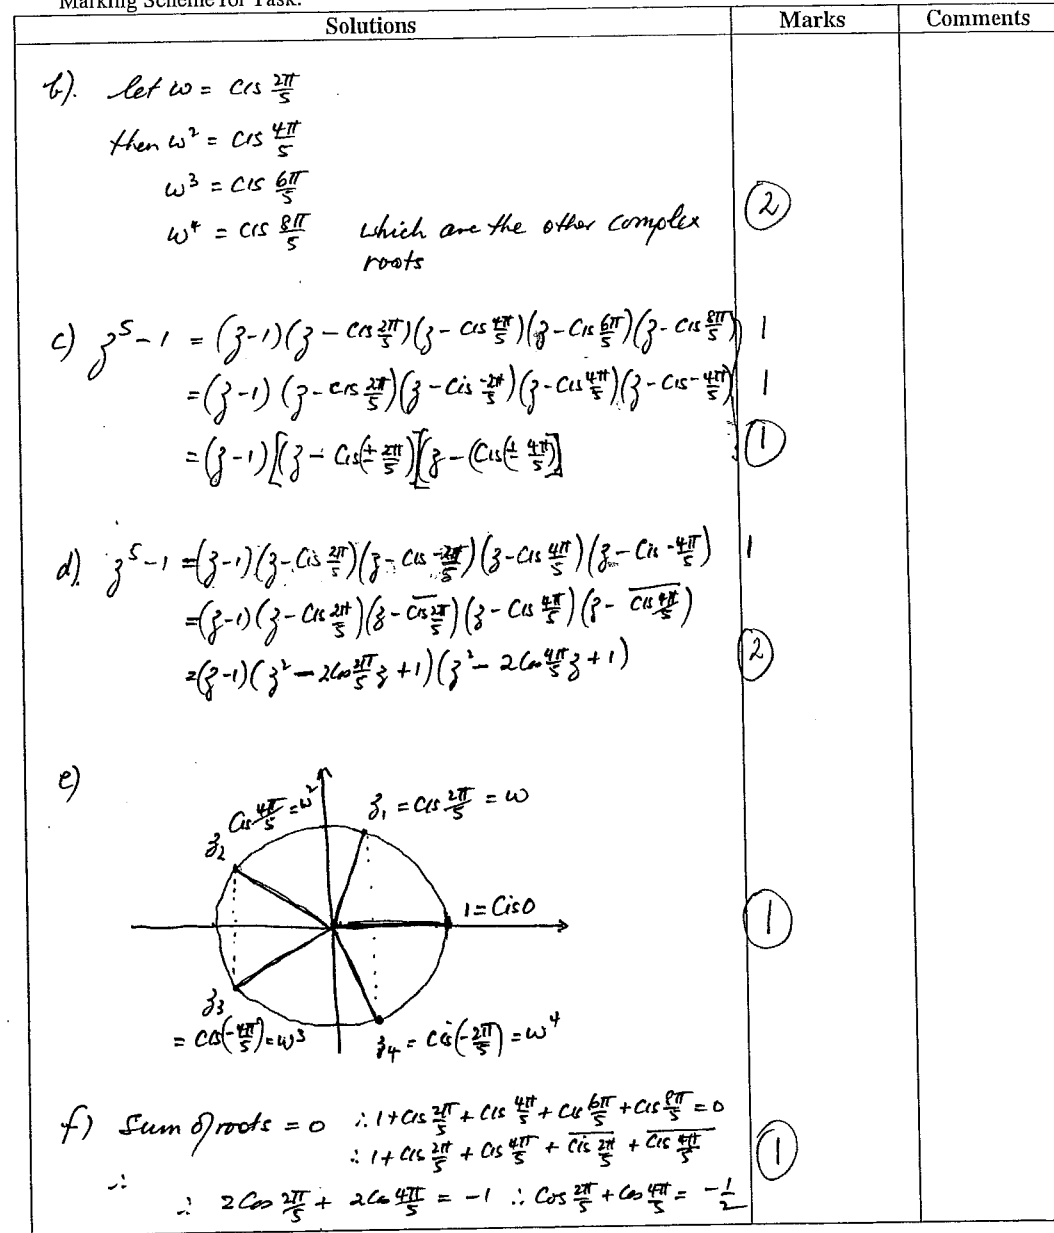 Marking Scheme for Task:
Solutions Marks Comments
b). let ω = cis 2π/5
then ω² = cis 4π/5
ω³ = cis 6π/5
ω⁴ = cis 8π/5 which are the other complex
roots
2
c) z⁵ - 1 = (z-1)(z - cis 2π/5)(z - cis 4π/5)(z - cis 6π/5)(z - cis 8π/5) 1
= (z-1)(z - cis 2π/5)(z - cis -2π/5)(z - cis 4π/5)(z - cis -4π/5) 1
= (z-1)[z - Cis(± 2π/5)][z - (Cis(± 4π/5)] 1
d). z⁵ - 1 = (z-1)(z - Cis 2π/5)(z - Cis -2π/5)(z - Cis 4π/5)(z - Cis -4π/5) 1
= (z-1)(z - Cis 2π/5)(z - C̅i̅s̅ 2π/5)(z - Cis 4π/5)(z - C̅i̅s̅ 4π/5)
= (z-1)(z² - 2Cos 2π/5 z + 1)(z² - 2Cos 4π/5 z + 1) 2
e)
Cis 4π/5 = ω²
z₂
z₁ = Cis 2π/5 = ω
1 = Cis0
1
z₃
= Cis(-4π/5) = ω³
z₄ = Cis(-2π/5) = ω⁴
f) Sum of roots = 0 ∴ 1 + Cis 2π/5 + Cis 4π/5 + Cis 6π/5 + Cis 8π/5 = 0
∴ 1 + Cis 2π/5 + Cis 4π/5 + C̅i̅s̅ 2π/5 + C̅i̅s̅ 4π/5 1
∴
∴ 2Cos 2π/5 + 2Cos 4π/5 = -1 ∴ Cos 2π/5 + Cos 4π/5 = -1/2